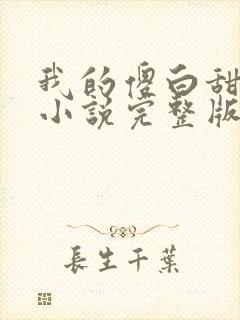 我的傻白甜
小説完整版
長生千葉